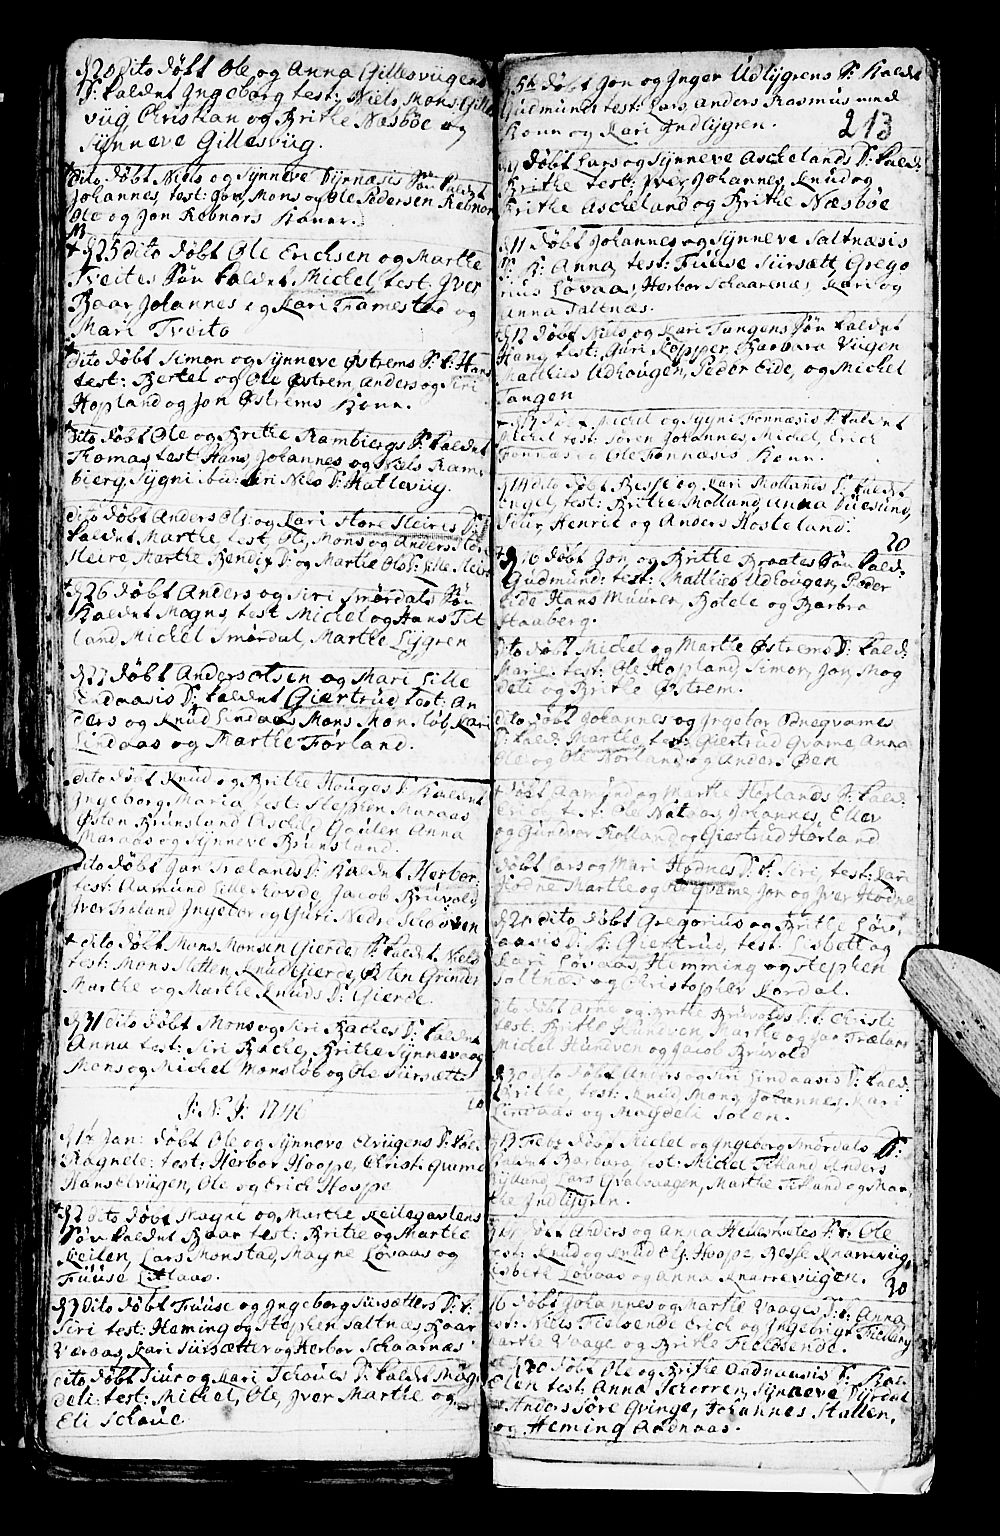 d 20 dito døbt Ole og Anna Gillesviigens
D: kaldet Ingeborg test: Niels, Mons Gille
viig Christian og Brithe Næsbøe og
Synneve Gillesviig.
dito døbt Niels og Synneve Dyrnæsis Søn kaldet
Johannes, test: Jon, Mons og Ole Pedersen Rebnor
Ole og Jon Rebnors Koner.
d 25 dito døbt Ole Erichsen og Marthe
Tveites Søn kaldet Michel, test: Iver
Baar Johannes og Kari Framestad og
Mari Tveito
dito døbt Simon og Synneve Østrems S: k: Hans
test: Bertel og Ole Østrem, Anders og Siri
Hopland og Jon Østrems Konn.
dito døbt Ole og Brithe Rambiergs S: kaldet
Thomas, test Hans, Johannes og Niels Ram
bierg Sygni ibu: Siri Nils D: Hatleviig.
dito døbt Anders Ols: og Kari Store Steiris D:
kaldet Marthe test Ole, Mons og Anders Stor
Steire Marthe Bendix D: og Marthe Ols: Lille Steir
d 26 døbt Anders og Siri Smørdals Søn
kaldet Magne, test Michel og Hans Tit
land Michel Smørdal, Marthe Lygren
d 27 døbt Anders Olsen og Mari Lille
Lindaasis D: kaldet Giertrud test: An
ders og Knud Lindaas Mons Monsløb, Kari
Lindaas og Marthe Førland.
dito døbt Knud og Brithe Houges D: kaldet
Ingeborg Maria test: Stephen Maraas
Østen Brunsland Aschild Gaulen Anna
Maraas og Synneve Brunsland.
dito døbt Jan Trælands D: kaldet Herbor:
test: Aamund Lille Hovde, Jacob Brüvold
Iver Træland Ingebor og Guri Nedre
+ dito døbt Mons Monsen Gierdes S: kaldet Niels
test: Mons Sletten, Knud Gierde, Østen Grinder
Marthe og Marthe Knuds D: Gierde.
d 31 dito døbt Mons og Siri Baches D: kaldet
Anna test: Siri Bache, Brithe Synnevaag
Mons og Michel Monsløb og Ole Siirsætte
J: N: J: 1746
d 1ste Jan: døbt Ole og Synneve Elvigens D: kal:
Ragnele: test: Herbor Hoope, Christi Qvame
Hans Elvigen, Ole og Erich Hoppe
d 2 dito døbt Magne og Marthe Keilegavlens
Søn kaldet Baar test: Brithe og Marthe
Keilen, Lars Monstad, Magne Løvaas og
Truuse Litlaas.
d 9 dito døbt Truuse og Ingeborg Siirsætters D: k:
Siri test: Heming og Stephen Saltnæs Baar
Kari Siirsætter og Herbor Schaarnæs
dito døbt Siur og Mari Schoues D: kaldet Mag
deli: test: Michel, Ole, Iver Marthe og
Eli Schoue
d 5te døbt Jon og Inger Udlygrens S: kaldet
Gudmund test: Lars, Anders Rasmus med
Konn og Kari Indlygren.
213
døbt Lars og Synneve Aschelands D: kald:
Brithe test: Iver Johannes Knud og
Brithe Ascheland og Brithe Næsbøe
d 11 døbt Johannes og Synneve Saltnæsis
D: k: Anna, test: Truuse Siirsætt, Grego
rius Løvaas, Herbor Schaarnæs Kari og
Anna Saltnæs.
d 12 døbt Niels og Kari Tangens Søn kaldet
Hans test: Guri Kopper Barbara Viigen
Matthies Udhougen, Peder Eide, og Michel
Tangen
døbt Michel og Sygni Fonnæsis S: kaldet
Michel test: Søren Johannes, Michel, Erick
Fonnæs og Ole Fonnæsis Konn.
d 14 dito døbt Besse og Kari Mollands D: kaldet
Engel, test: Brithe Molland, Anna Duesund,
Siur, Henrik og Anders Hosteland.
20
d 16 døbt Jon og Brithe Braates Søn kald:
Gudmund: test: Matthies Udhougen, Peder
Eide Hans Muurer, Botele og Barbra
Hauberg.
dito døbt Michel og Marthe Østrems D: kald:
Marie: test: Ole Hopland, Simon, Jon, Mog
deli og Brithe Østrem.
dito døbt Johannes og Ingebor Qvames
D: kald: Marthe, test: Giertrud Qvame, Anna
Ole og Ole Horland og Anders Øen
døbt Aamund og Marthe Horlands S: kald:
Erich test: Ole Nataas, Johannes, Elier
og Gunvor Kolland og Giertrud Horland
døbt Lars og Mari Hodnes D: k: Siri, test: Kari
Hodne Marthe og Ole Qvame Jon og Iver Hodne
d 20 dito døbt Gregorius og Brithe Løv
aasis D: k: Giertrud, test: Lisbett og
Kari Løvaas, Hemming og Stephen
Saltnæs og Christopher Kordal.
dito døbt Arne og Brithe Brüvolds D: k: Christi
test: Brithe Hundven, Marthe og Jan Træland
Michel Hundven og Jacob Brüvold
d 30 dito døbt Anders og Siri Lindaasis D: kald:
Brithe, test: Knud, Mons, Johannes, Kari
Lindaas og Magdeli Solen.
d 13 Febr døbt Michel og Ingeborg Smørdals D:
kaldet Barbara, test: Michel Titland Anders
Lars Qvalvaagen, Marthe Titland og Mar
the Indlygren.
døbt Anders og Anna Hellesnutes S: k: Ole
test: Knud og Knud Ols: Hoope Besse Knarreviig
Lisbeth Løvaas og Anna Knarreviigen.
30
døbt Johannes og Marthe Vaages D: k: Anna
test: Niels Fieløsende Erick og Ingebrigt
Marthe Vaage og Brithe Fieløsende.
d 20 døbt Ole og Brithe Aadnaasis D: kal:
Elen test: Anna Schorren, Synneve Dyrdal
Anders Søre Qvinge, Johannes Stallen,
og Heming Aadnaas.